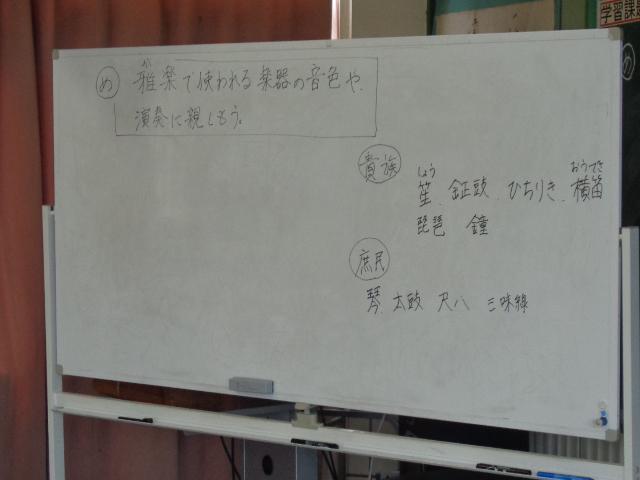 学習課題
め 雅楽で使われる楽器の音色や、
が
演奏に親しもう。
貴族
しょう おうてき
笙、鉦鼓、ひちりき、横笛
琵琶 鐘
庶民
琴、太鼓 尺八 三味線
め